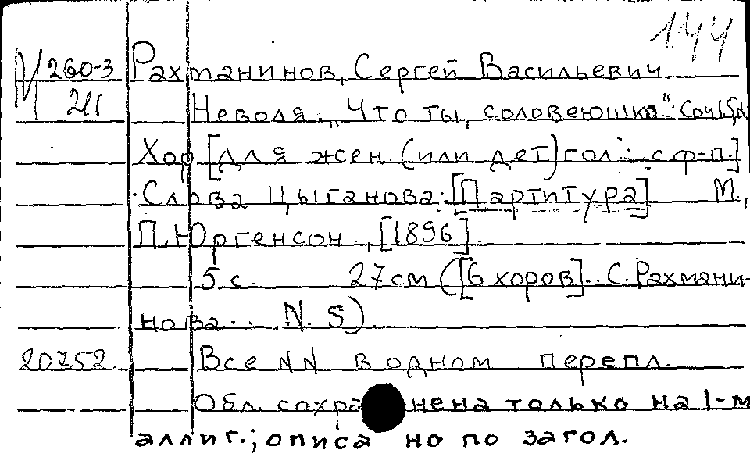 144
М 260-3 Рахманинов, Сергей Васильевич
211 Неволя. „Что ты, соловеюшка" Соч. 15, №
Хор [для жен (или дет) гол. с ф-п.]
Слова Цыганова. [Партитура] М.,
П. Юргенсон, [1896].
5 с. 27 см ([6 хоров]. С. Рахмани-
нова. N. 5)
20752. Все NN в одном перепл.
Обл. сохранена только на 1-м
аллиг.; описано по загол.